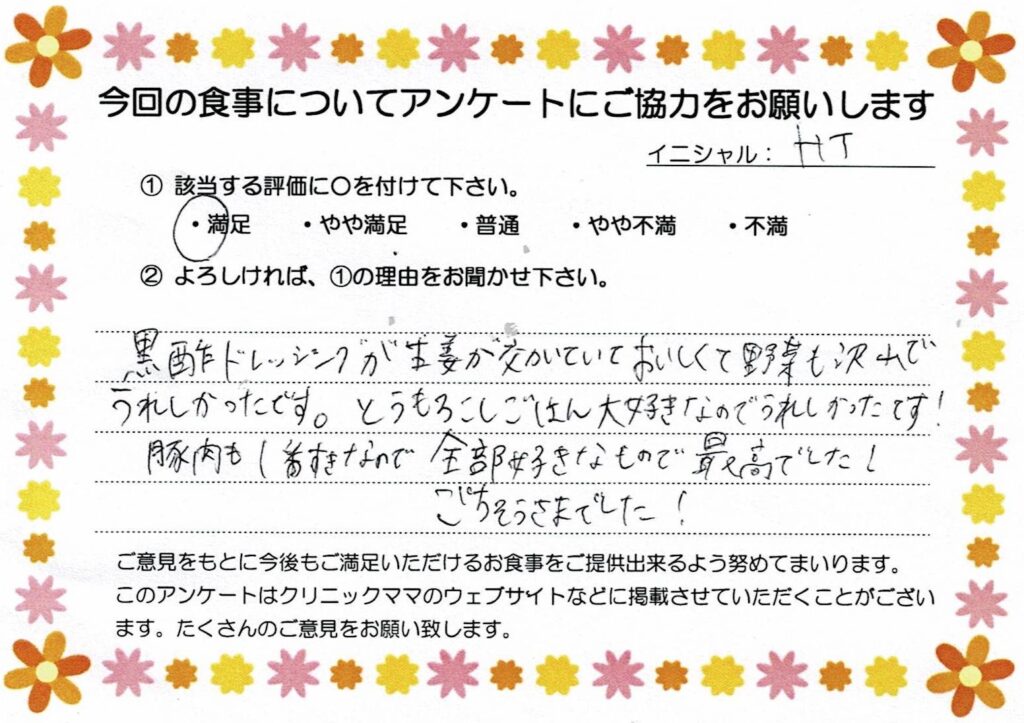 今回の食事についてアンケートにご協力をお願いします
イニシャル： HT
① 該当する評価に○を付けて下さい。
・満足 ・やや満足 ・普通 ・やや不満 ・不満
② よろしければ、①の理由をお聞かせ下さい。
黒酢ドレッシングが生姜が効いていておいしくて野菜も沢山で
うれしかったです。とうもろこしごはん大好きなのでうれしかったです！
豚肉も1番すきなので全部好きなもので最高でした！
ごちそうさまでした！
ご意見をもとに今後もご満足いただけるお食事をご提供出来るよう努めてまいります。
このアンケートはクリニックママのウェブサイトなどに掲載させていただくことがござい
ます。たくさんのご意見をお願い致します。